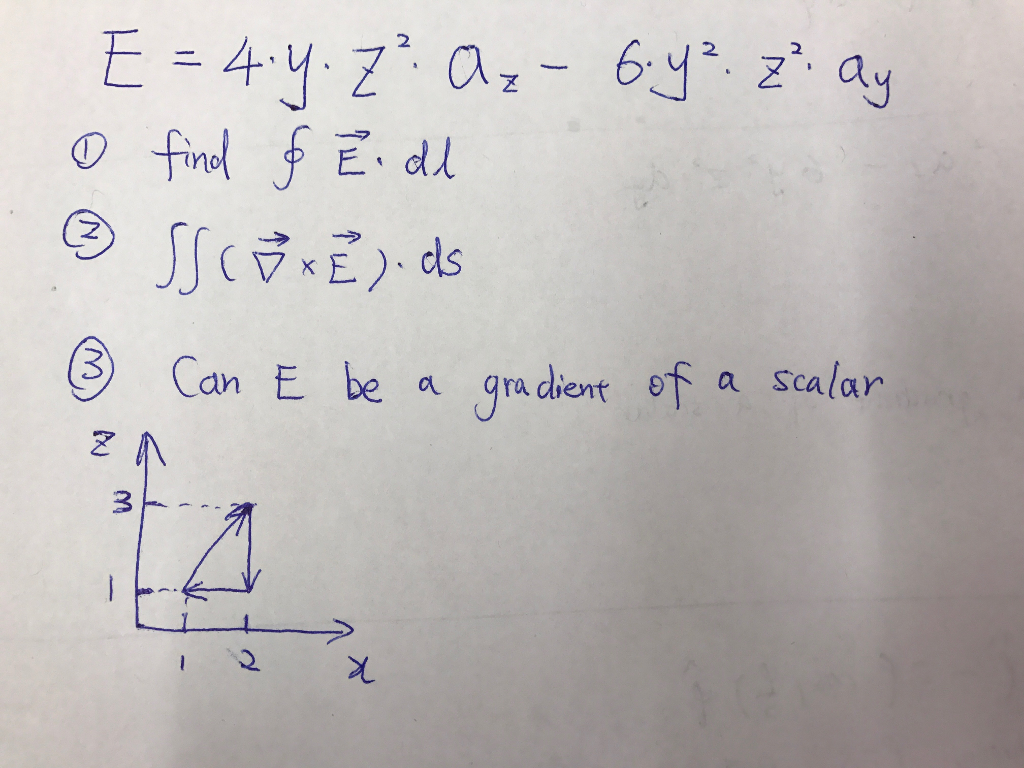 E = 4·y·z²·a_z − 6·y²·z²·a_y
① find ∮ E⃗·dl
② ∬(∇⃗×E⃗)·ds
③ Can E be a gradient of a scalar
z
3
1
1 2 x